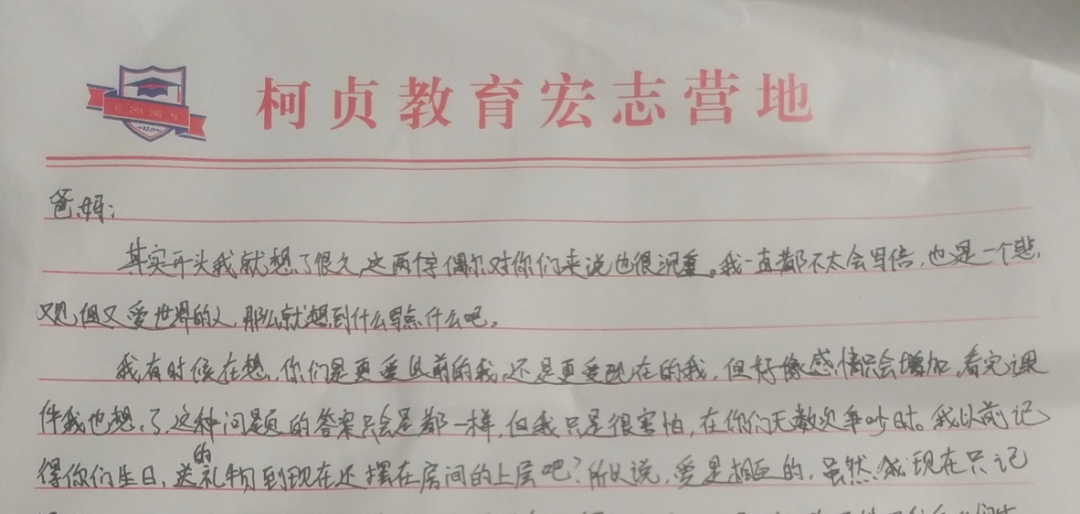 柯贞教育宏志营地
爸妈:
其实开头我就想了很久,这两字偶尔对你们来说也很沉重。我一直都不太会写信,也是一个悲
观,但又爱世界的人,那么就想到什么写点什么吧。
我有时候在想,你们是更爱以前的我,还是更爱现在的我,但好像感情只会增加,看完课
件我也想了,这种问题的答案只会是都一样,但我只是很害怕,在你们无数次争吵时。我以前记
得你们生日,送的礼物到现在还摆在房间的上层吧?所以说,爱是相互的,虽然我现在只记